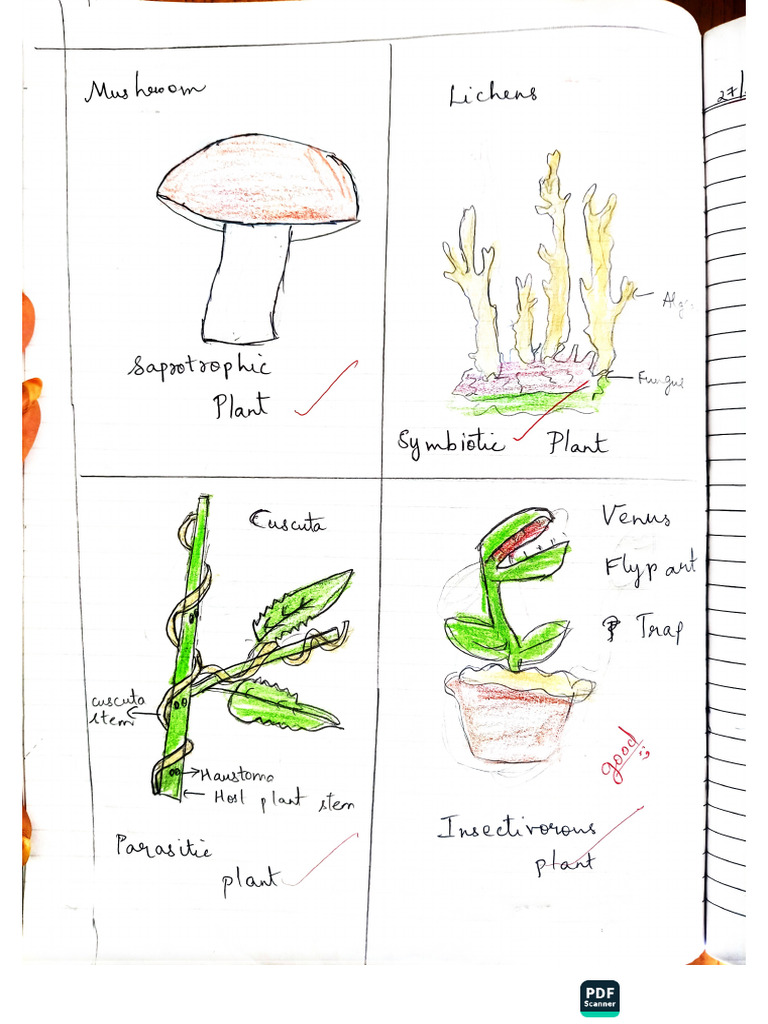 Mushroom
Saprotrophic
Plant
Lichens
Fungus
Symbiotic Plant
Cuscuta
cuscuta
stem
Haustoma
Host plant stem
Parasitic
plant
Venus
Flyp ant
Trap
good
Insectivorous
plant
27/
PDF
Scanner